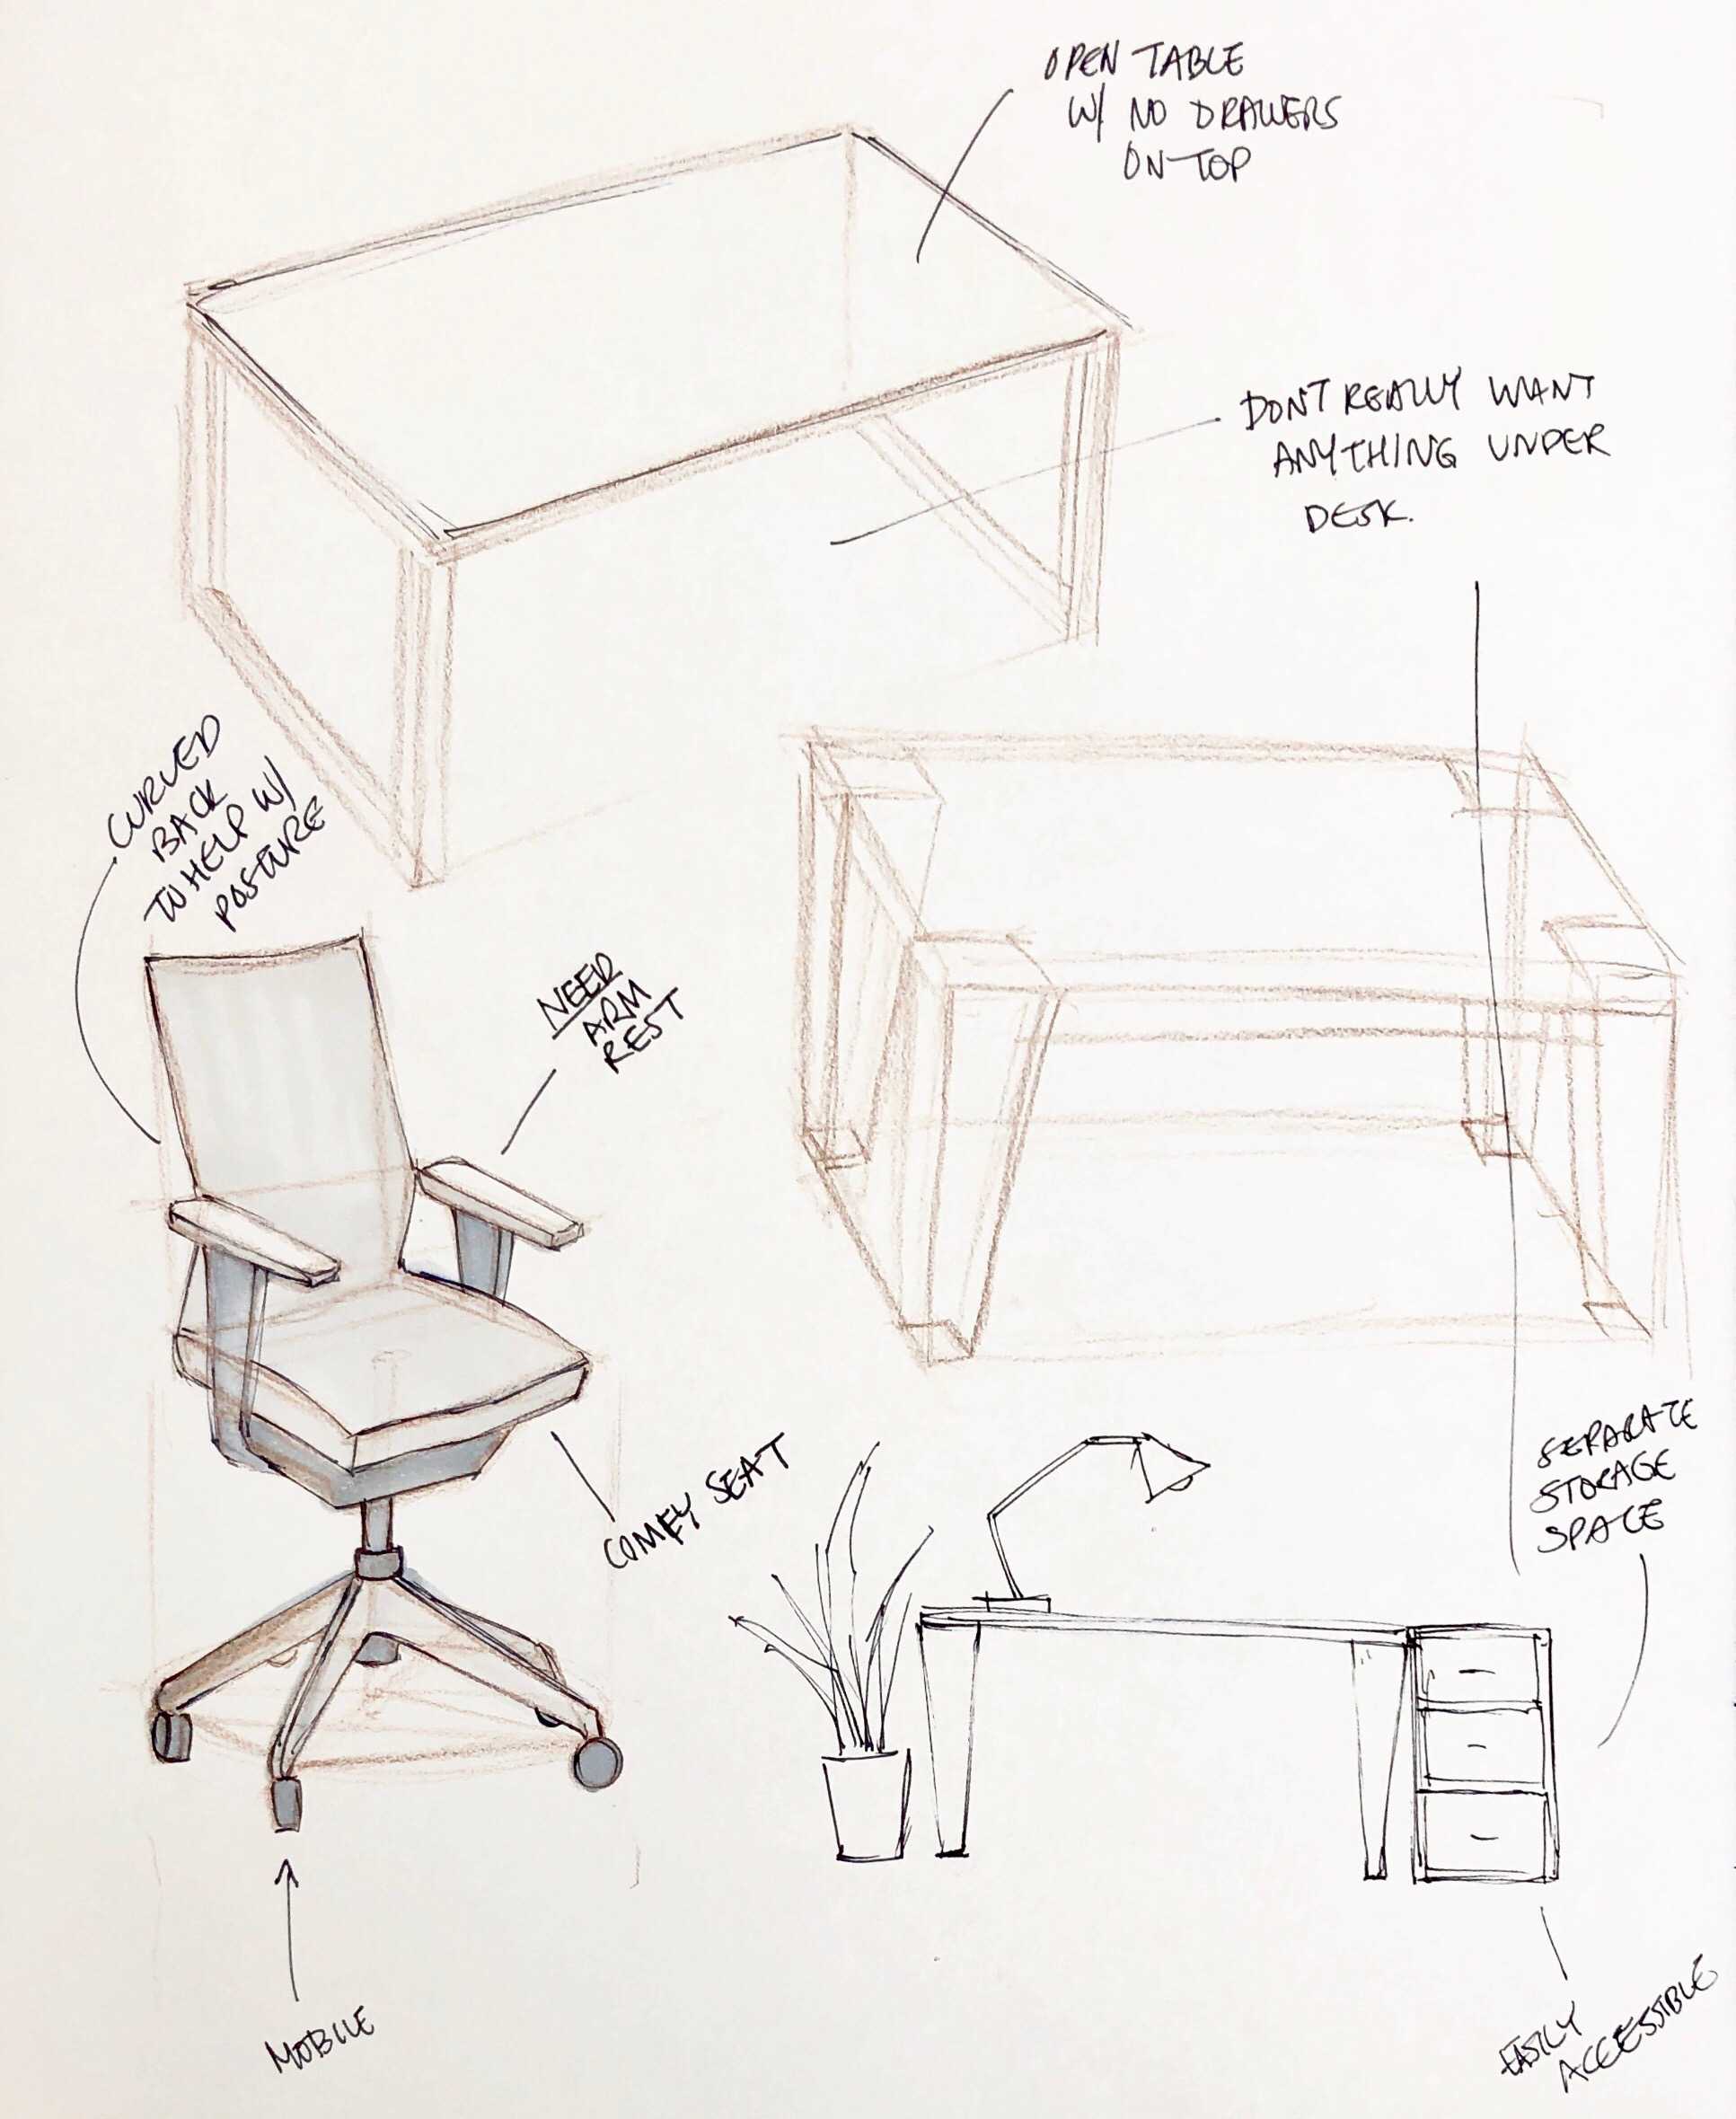 OPEN TABLE
W/ NO DRAWERS
ON TOP
DONT REALLY WANT
ANYTHING UNDER
DESK.
CURVED
BACK
TO HELP W/
POSTURE
NEED
ARM
REST
COMFY SEAT
SEPARATE
STORAGE
SPACE
MOBILE
EASILY
ACCESSIBLE